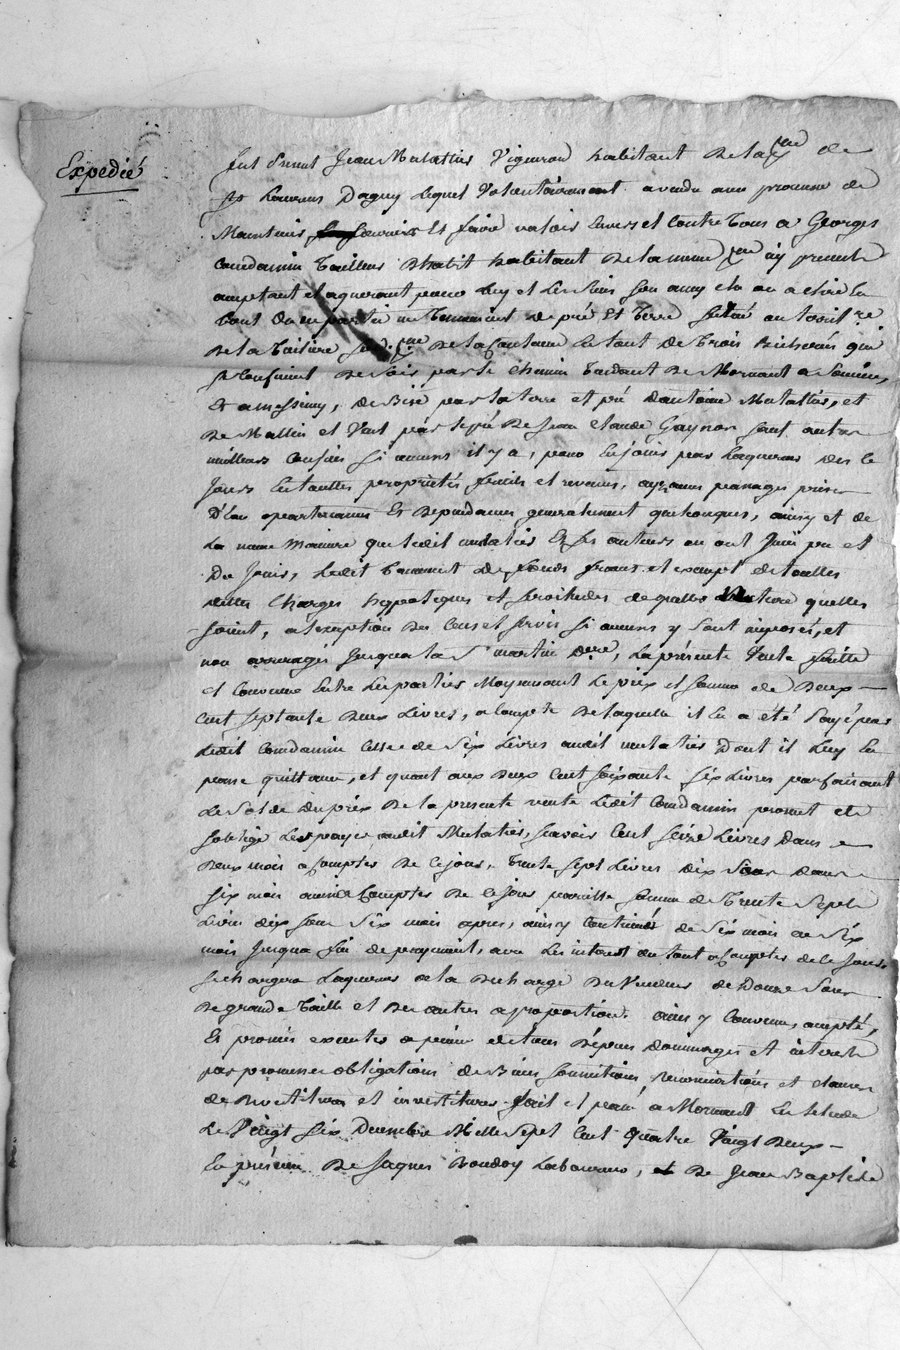 Expedié
fut Present Jean Mulatier Vigneron habitant de la psse de
St Laurens Dagny lequel Volontairement a vendu avec promesse de
Maintenir, et faire valoir envers et contre tous a Georges
Condamin tailleur dhabit habitant de la meme psse icy present
acceptant et aquerant pour luy et les siens son amy elu ou a elire en
tout un tennement de pré et terre situé au territre
de la dte psse de la fontaine le tout de trois bichenées qui
se confinent de soir par le chemin tendant de Mornant a
et a messimy, de bise par la terre et pré dantoine Mulatier, et
de Matin et Vent par le pré de Jean Claude Gaynon sauf autres
meilleurs confins si aucuns il y a, pour en jouir par laquereur des ce
jour en toutes proprietés fruits et revenus, aysances passages prises
D'eau apartenances et dependances generalement quelconques, ainsy et de
la meme maniere que ledit mulatier et ses auteurs en ont jouï pu et
du jouir, ledit tennement de fonds franc et exempt de toutes
dettes charges hypoteques et servitudes de quelle Nature quelles
soient, a lexception des cens et servis si aucuns y sont imposés, et
non arreragés jusqua la St martin dere, la présente Vente faitte
et convenue entre les parties Moyennant le prix et somme de deux
cent septante deux livres, a compte de laquelle il en a été payé par
ledit Condamin celle de six livres audit mulatier dont il luy en
passe quittance, et quant aux deux cent soixante six livres parfaisant
le solde du prix de la presente vente ledit Condamin promet et
soblige les payer audit Mulatier, scavoir cent seize livres dans
deux mois a compter de ce jour, trente sept livres dix sous dans
six mois aussi a compter de ce jour pareille somme de trente sept
livres dix sous six mois apres, ainsy continuer de six mois en six
mois jusqua fin de payement, avec les interets du tout a compter de ce jour
se chargera laquereur de la decharge du Vendeur de Douze sous
de grande taille et des autres a proportion. ainsy convenu, accepté,
et promis executer a peine de tous Dépens dommages et interets
par promesses obligations de biens soumissions, renonciations et clauses
de devestitures et investitures fait et passé a Mornant en letude
le Vingt six Decembre Mille Sept Cent Quatre Vingt Deux
En présence de Jaques Boudoy Laboureur, et de Jean Baptiste